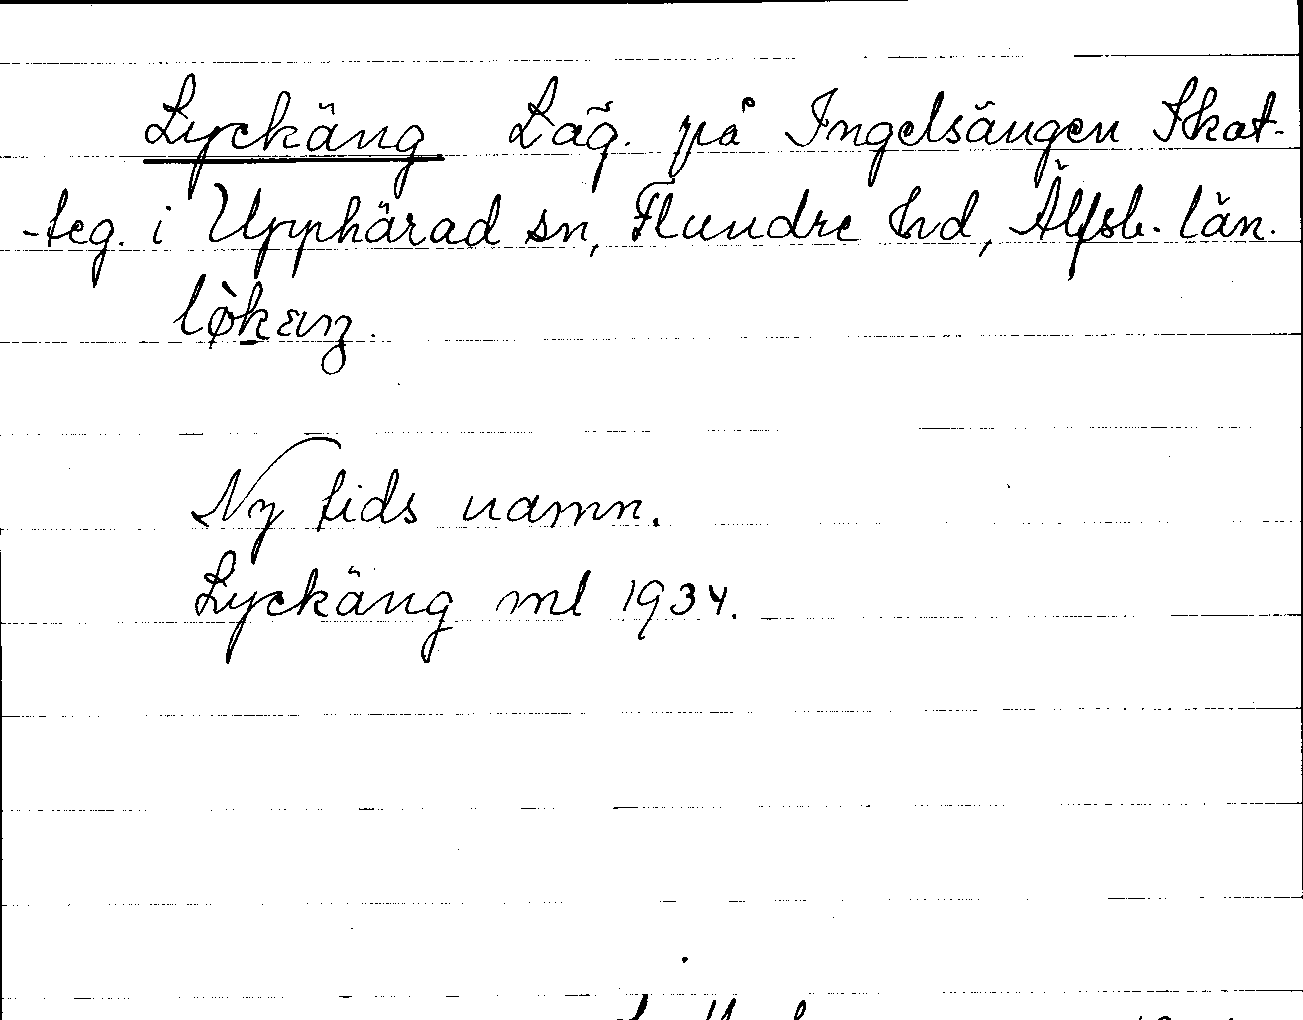 Lyckäng Läg. på Ingelsängen Skat-
-teg. i Upphärad sn, Flundre hd, Älfsb. län.
lø̀kæŋ.
Ny tids namn.
Lyckäng ml 1934.